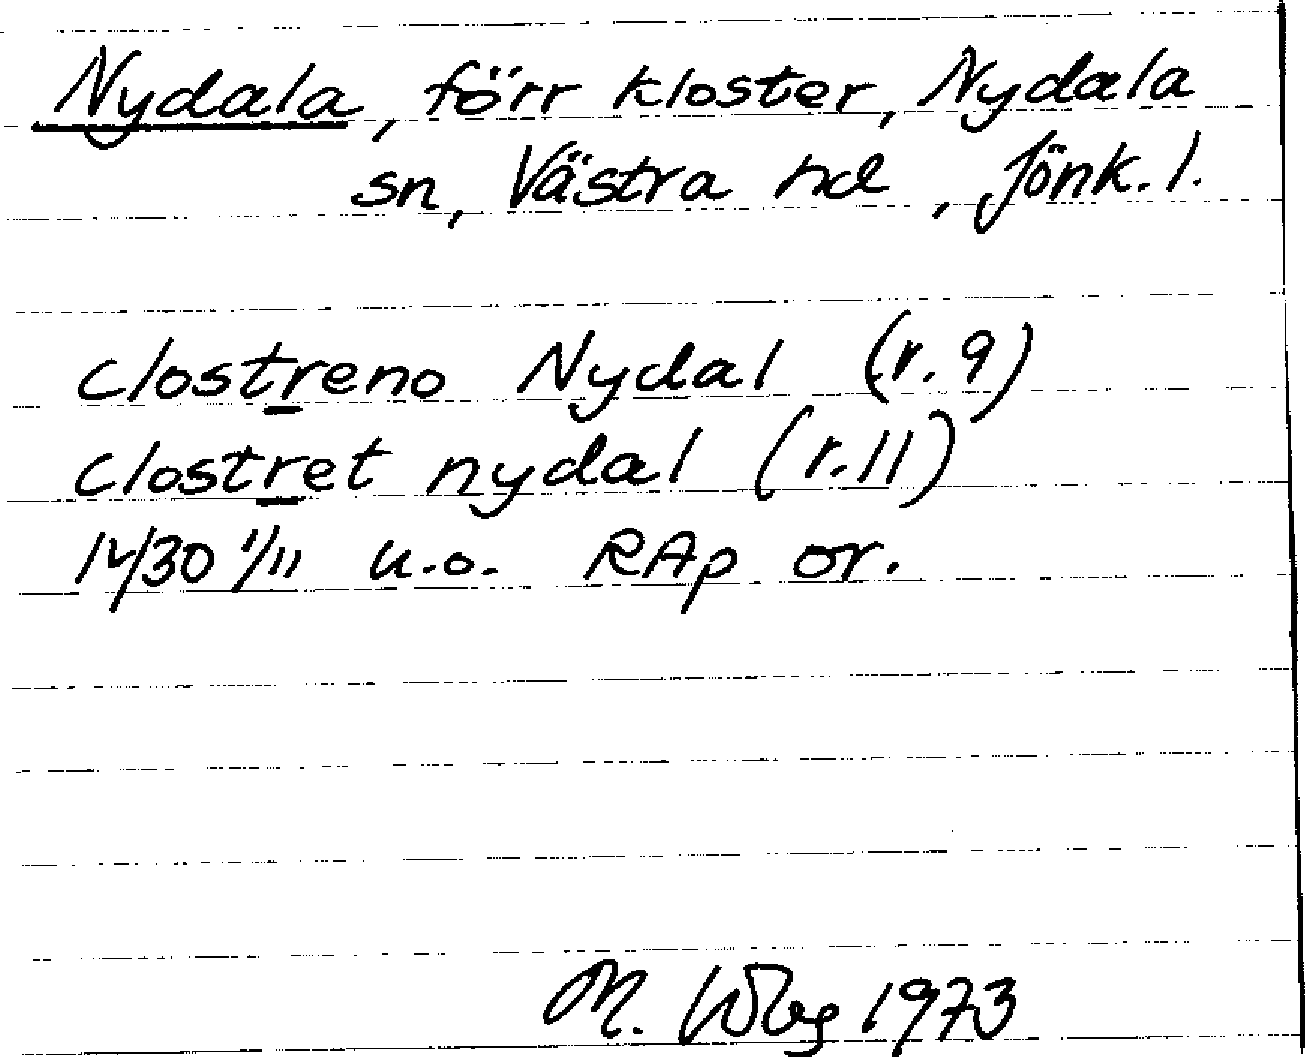 Nydala, förr kloster, Nydala
sn, Västra hd, Jönk. l.
clostreno Nydal (r. 9)
clostret nydal (r. 11)
1430 1/11 u.o. RAp or.
M. 1973